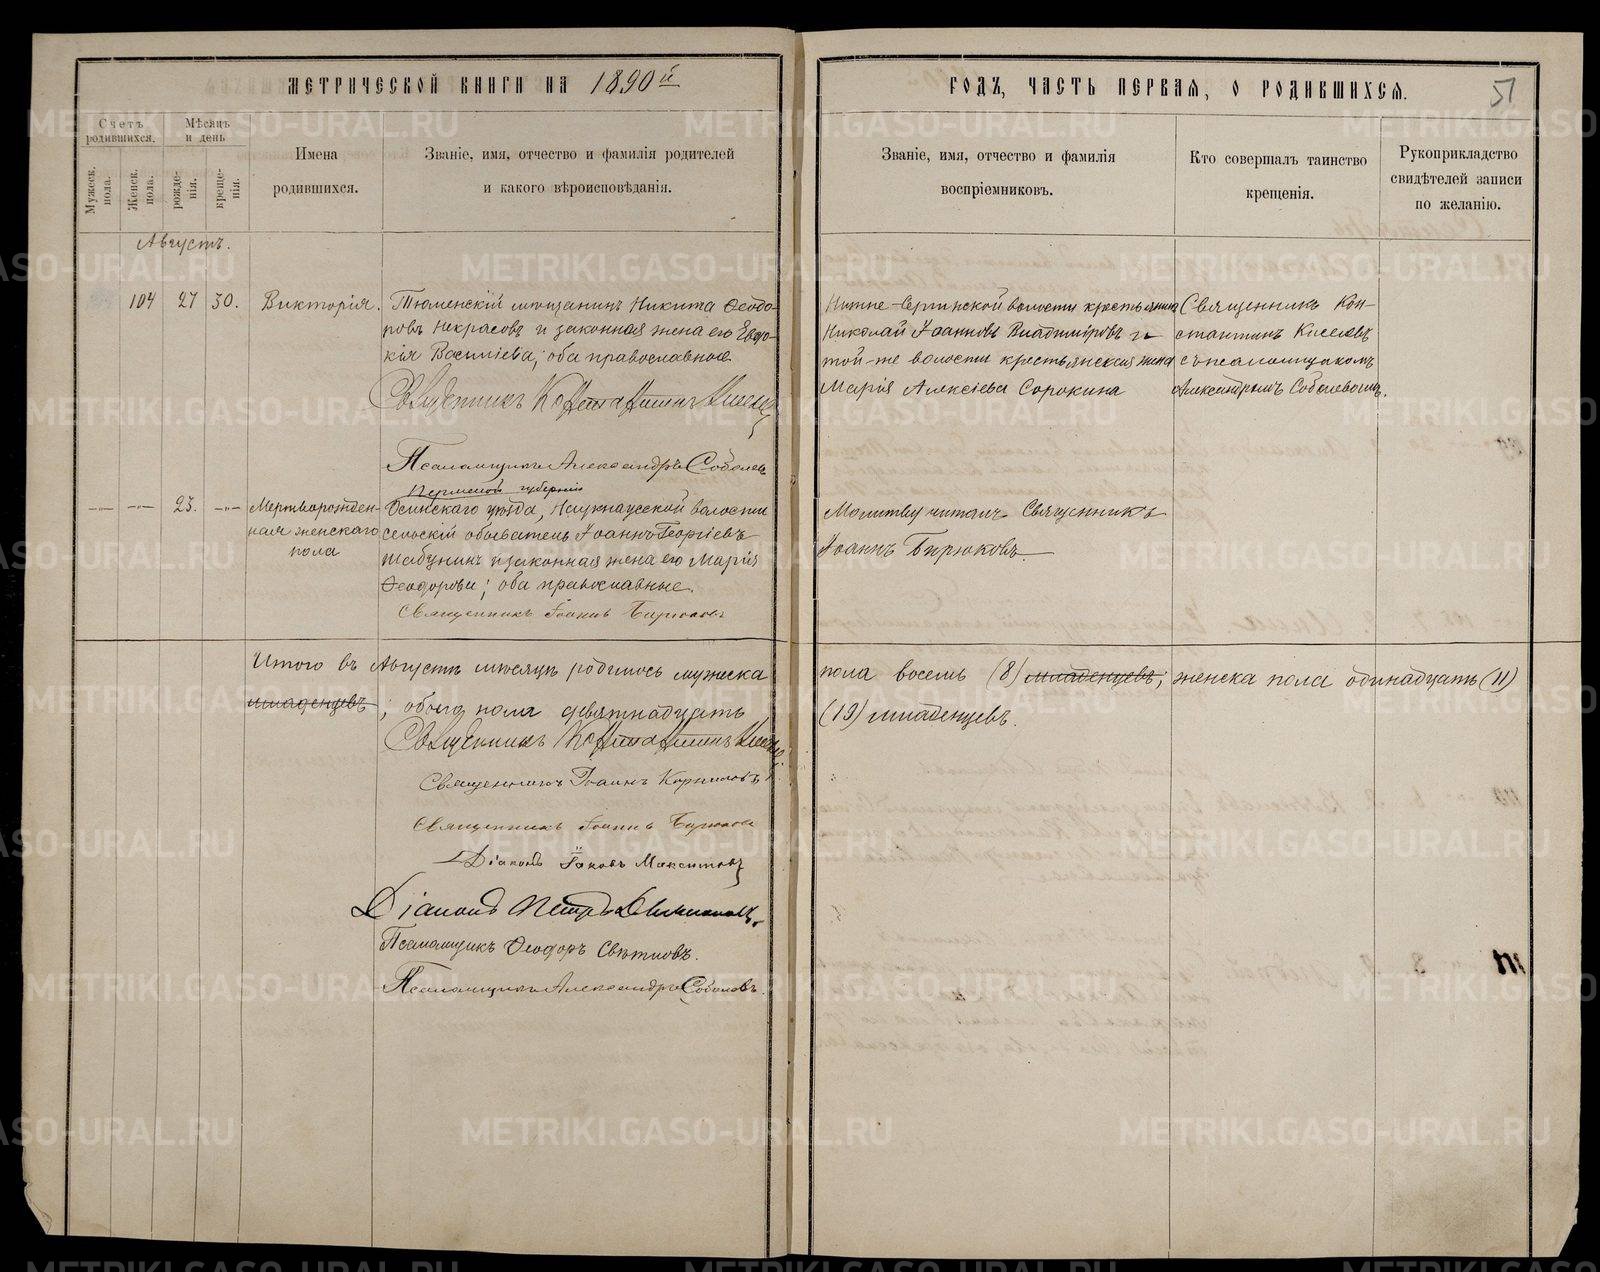 МЕТРИЧЕСКОЙ КНИГИ НА 1890й
ГОДЪ, ЧАСТЬ ПЕРВАЯ, О РОДИВШИХСЯ.
51
Счетъ родившихся.
Мужеск. пола.
Женск. пола.
Мѣсяцъ и день
рожде-нія.
креще-нія.
Имена
родившихся.
Званіе, имя, отчество и фамилія родителей
и какого вѣроисповѣданія.
Званіе, имя, отчество и фамилія
воспріемниковъ.
Кто совершалъ таинство
крещенія.
Рукоприкладство
свидѣтелей записи
по желанію.
Августъ.
104 27 30. Викторія.
Тюменскій мѣщанинъ Никита Ѳеодо-
ровъ Некрасовъ и законная жена его Евдо-
кія Васильева; оба православные
Священникъ Константинъ Киселевъ
Псаломщикъ Александръ Соболевъ
Нижне-Сергинской волости крестьянинъ
Николай Іоанновъ Владиміровъ и
той-же волости крестьянская жена
Марія Алексіева Сорокина
Священникъ Кон-
стантинъ Киселевъ
с псаломщикомъ
Александромъ Соболевымъ.
23. Мертворожден-
ная женскаго
пола
Пермской губерніи
Осинскаго уѣзда, волости
сельскій обыватель Іоаннъ Георгіевъ
Шабунинъ и законная жена его Марія
Ѳеодорова; оба православные.
Священникъ Іоаннъ Бирюковъ
Молитву читалъ Священникъ
Іоаннъ Бирюковъ
Итого въ Августѣ мѣсяцѣ родилось мужеска
пола восемь (8) младенцевъ; женска пола одинадцать (11)
младенцевъ; обоего пола девятнадцать
(19) младенцевъ.
Священникъ Константинъ Киселевъ
Священникъ Іоаннъ Корниловъ
Священникъ Іоаннъ Бирюковъ
Діаконъ Іаковъ Максимовъ
Діаконъ Петръ
Псаломщикъ Ѳеодоръ Свѣтловъ.
Псаломщикъ Александръ Соболевъ.
METRIKI.GASO-URAL.RU